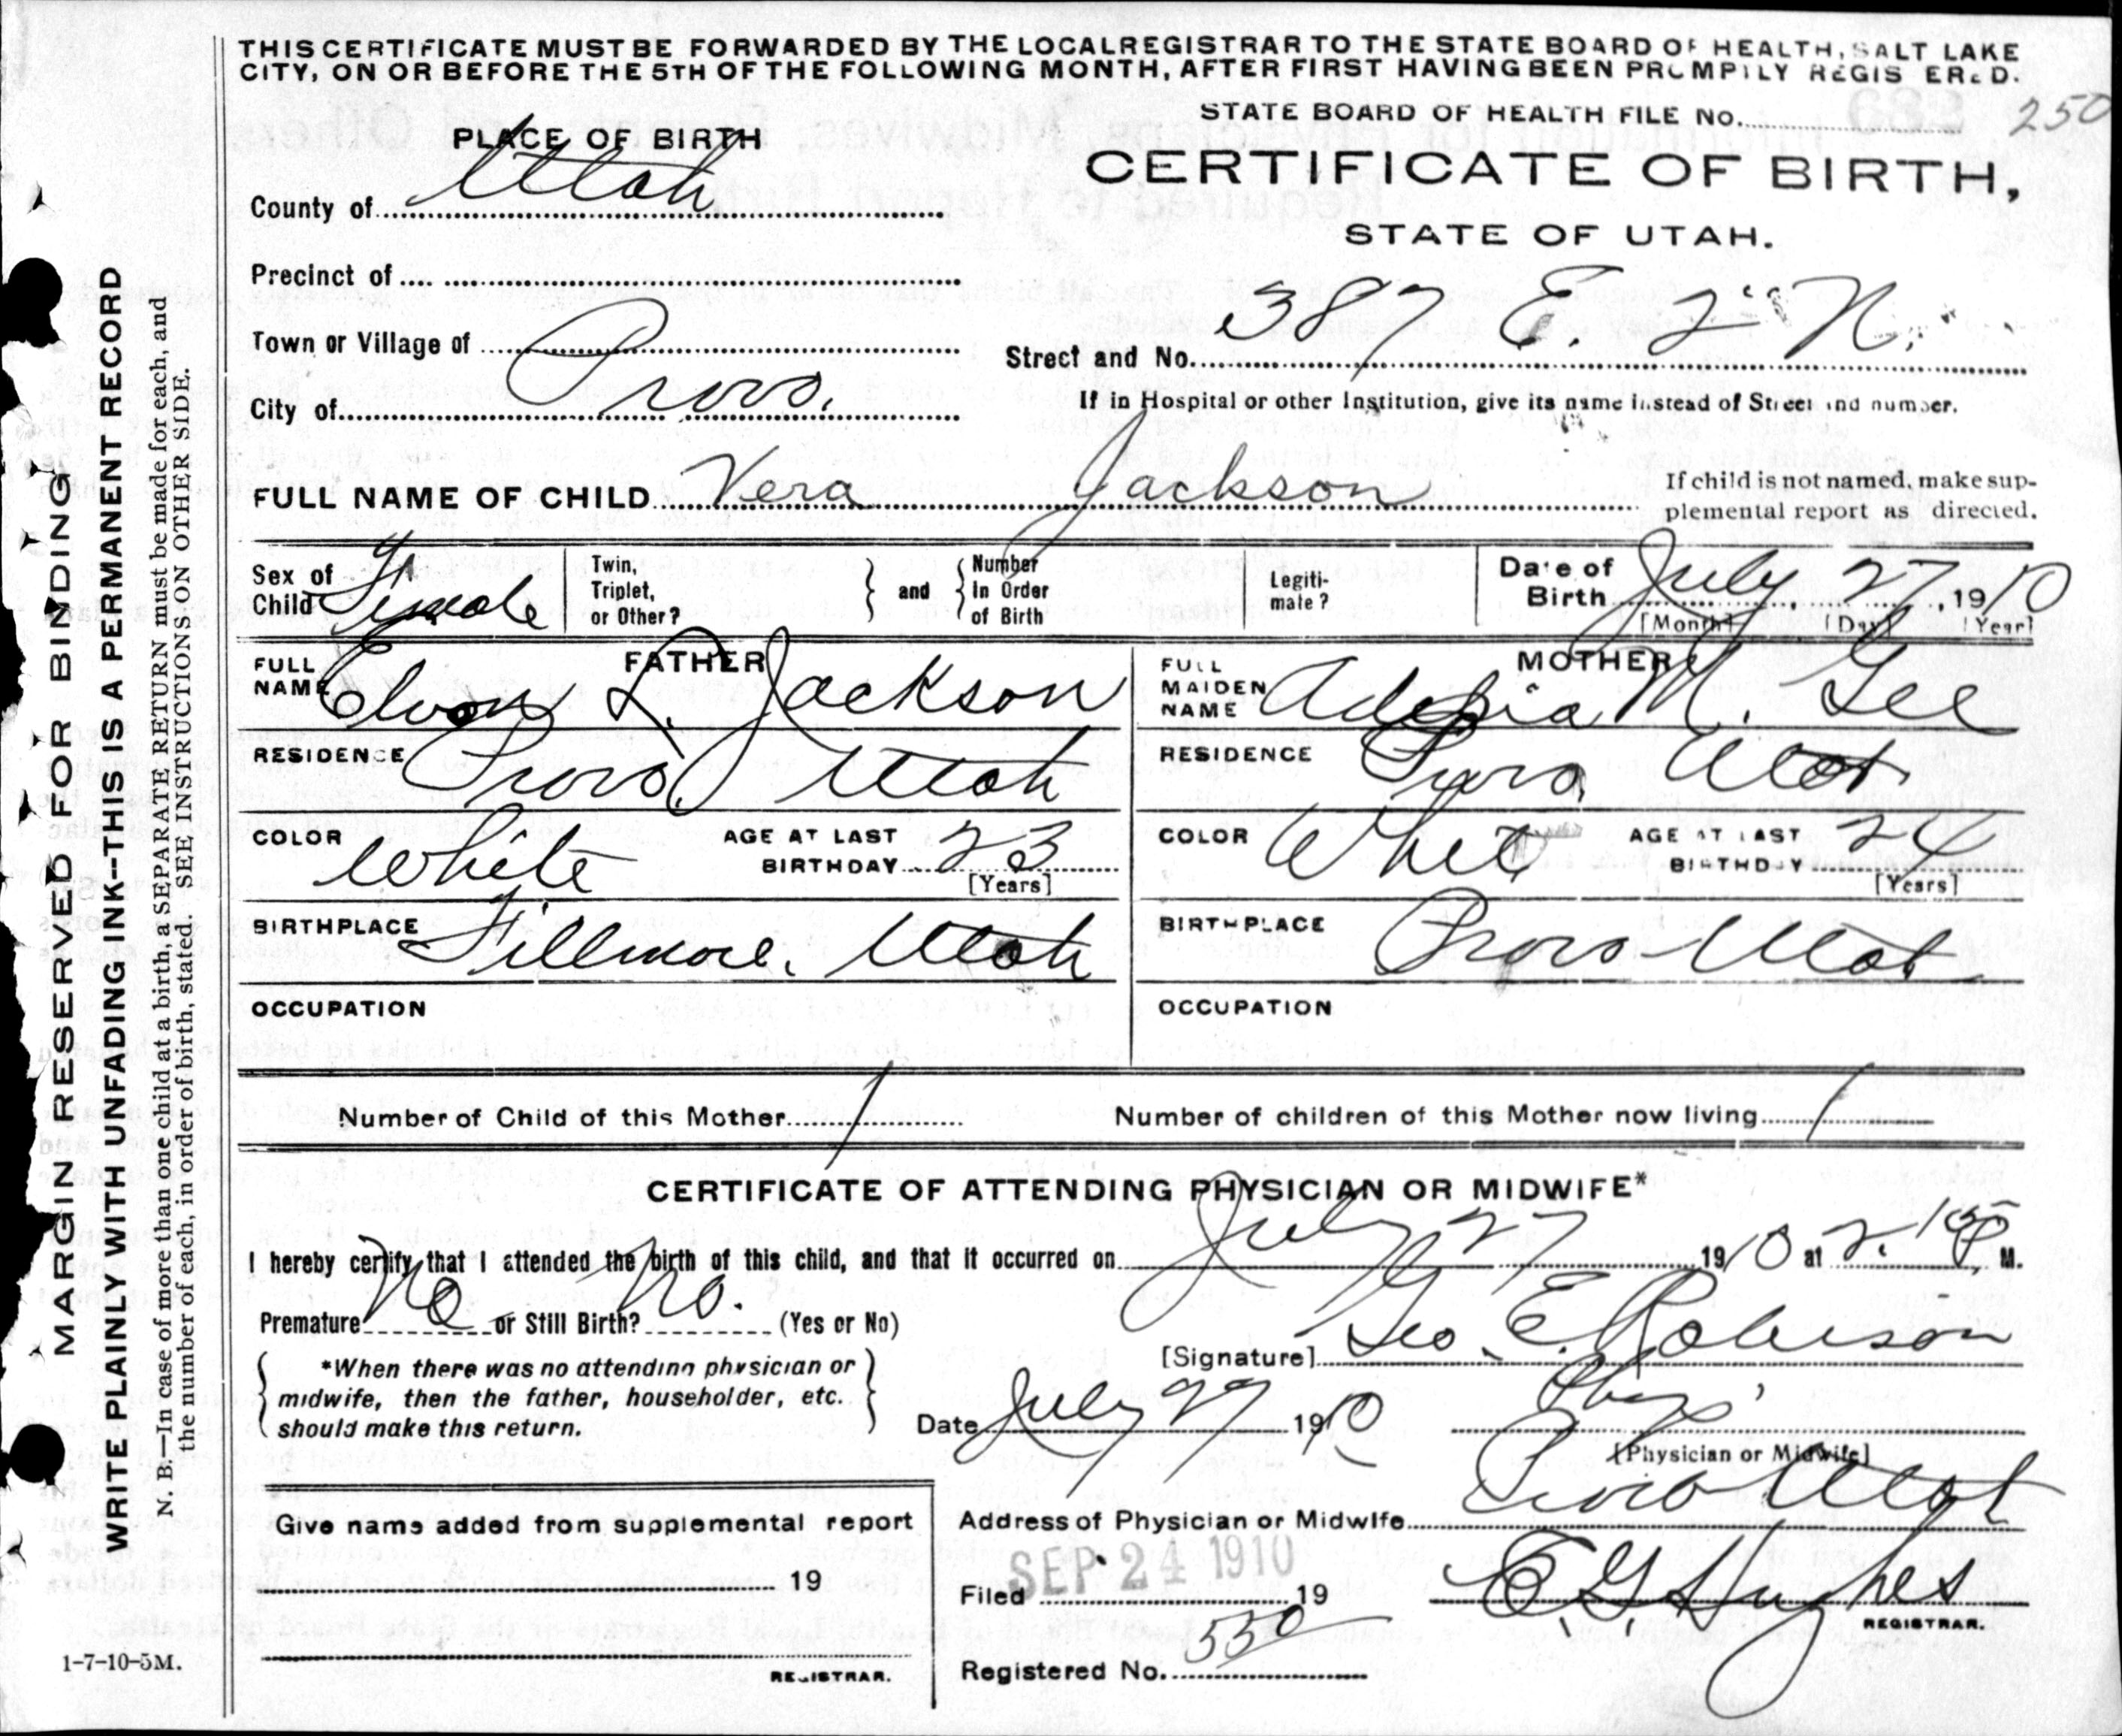 THIS CERTIFICATE MUST BE FORWARDED BY THE LOCAL REGISTRAR TO THE STATE BOARD OF HEALTH, SALT LAKE
CITY, ON OR BEFORE THE 5TH OF THE FOLLOWING MONTH, AFTER FIRST HAVING BEEN PROMPTLY REGISTERED.
STATE BOARD OF HEALTH FILE No. 250
PLACE OF BIRTH
CERTIFICATE OF BIRTH,
STATE OF UTAH.
County of Utah
Precinct of
Town or Village of
Street and No. 387 E. 2" N.
City of Provo.
If in Hospital or other Institution, give its name instead of Street and number.
FULL NAME OF CHILD Vera Jackson
If child is not named, make sup-
plemental report as directed.
Sex of Child Female
Twin, Triplet, or Other?
and
Number In Order of Birth
Legiti-
mate?
Date of Birth July 27, 1910
[Month] [Day] [Year]
FATHER
FULL NAME L. Jackson
RESIDENCE Provo, Utah
COLOR White
AGE AT LAST BIRTHDAY 23
[Years]
BIRTHPLACE Fillmore, Utah
OCCUPATION
MOTHER
FULL MAIDEN NAME M. Gee
RESIDENCE Provo, Utah
COLOR White
AGE AT LAST BIRTHDAY 24
[Years]
BIRTHPLACE Provo Utah
OCCUPATION
Number of Child of this Mother 1
Number of children of this Mother now living 1
CERTIFICATE OF ATTENDING PHYSICIAN OR MIDWIFE*
I hereby certify that I attended the birth of this child, and that it occurred on July 27 1910 at P. M.
Premature No or Still Birth? No. (Yes or No)
[Signature] Geo. E. Robison
*When there was no attending physician or
midwife, then the father, householder, etc.
should make this return.
Date July 27 1910
Phys.
[Physician or Midwife]
Address of Physician or Midwife Provo Utah
Give name added from supplemental report
19
REGISTRAR.
Filed SEP 24 1910 19
E. G. Hughes
REGISTRAR.
Registered No. 550
1-7-10-5M.
MARGIN RESERVED FOR BINDING
WRITE PLAINLY WITH UNFADING INK--THIS IS A PERMANENT RECORD
N. B—In case of more than one child at a birth, a SEPARATE RETURN must be made for each, and
the number of each, in order of birth, stated. SEE INSTRUCTIONS ON OTHER SIDE.